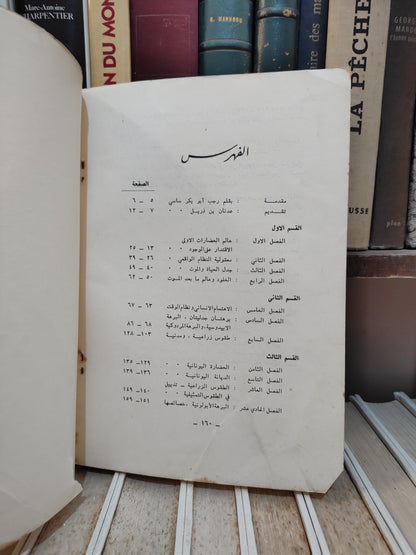 Marc-Antoine
CHARPENTIER
DU MON
LA PÊCHE
الفهرس
الصفحة
مقدمة : بقلم رجب أبو بكر سامي ٥ - ٦
تقديم : عدنان بن ذريل ٧ - ١٢
القسم الاول
الفصل الاول : عالم الحضارات الاولى
الاقتدار على الوجود ١٣ - ٢٥
الفصل الثاني : معقولية النظام الواقعي ٢٦ - ٣٩
الفصل الثالث : جدل الحياة والموت ٤٠ - ٤٩
الفصل الرابع : الخلود وعالم ما بعد الموت ٥٠ - ٦٢
القسم الثاني
الفصل الخامس : الاهتمام الانساني ونظام الوقت ٦٣ - ٦٧
الفصل السادس : برهتان جدليتان - البرهة
الايبدوسية، والبرهة المردوكية ٦٨ - ٨٦
الفصل السابع : طقوس زراعية - ومدنية ١٠٣ - ١٢٨
القسم الثالث
الفصل الثامن : الحضارة اليونانية ١٢٩ - ١٣٥
الفصل التاسع : الديانة اليونانية ١٣٦ - ١٣٩
الفصل العاشر : الطقوس الزراعية - تذييل
في الطقوس التمثيلية ١٤٠ - ١٤٩
الفصل الحادي عشر : البرهة الأبولونية، خصائصها ١٥١ - ١٥٩
- ١٦٠ -